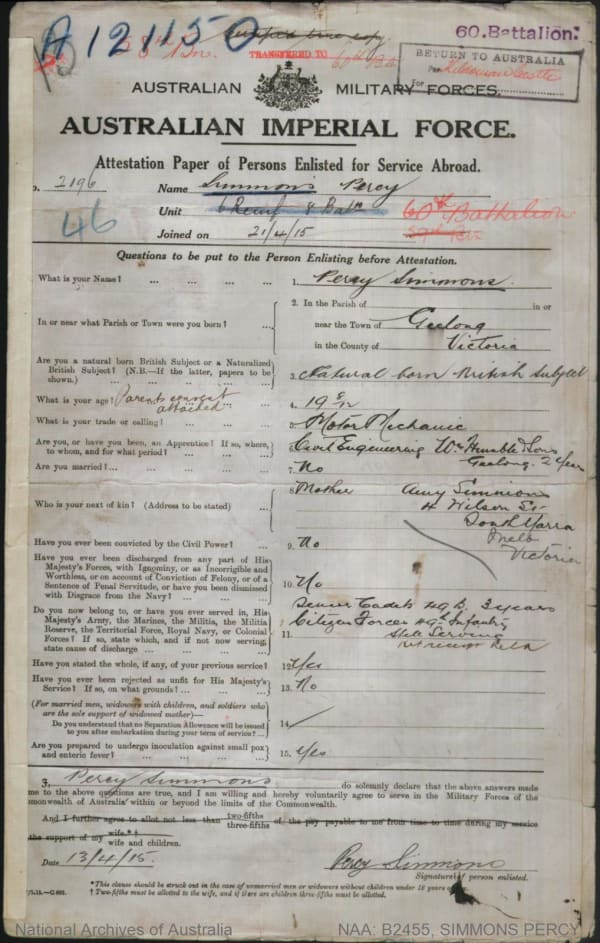 A 121150
60. Battalion.
58th Bn.
TRANSFERED TO 60th Bn
RETURN TO AUSTRALIA
Per Kildonian Castle
For
AUSTRALIAN MILITARY FORCES.
AUSTRALIAN IMPERIAL FORCE.
Attestation Paper of Persons Enlisted for Service Abroad.
o. 2196 Name Simmons Percy
46 Unit 6 Reinf 8 Batn 60th Battalion
Joined on 21/4/15
Questions to be put to the Person Enlisting before Attestation.
What is your Name? ... ... ... ... 1. Percy Simmons.
2. In the Parish of in or
In or near what Parish or Town were you born? ... near the Town of Geelong
in the County of Victoria
Are you a natural born British Subject or a Naturalized
British Subject? (N.B.—If the latter, papers to be
shown.) ... ... ... ... ... 3. Natural born British Subject
What is your age? Parents consent attached ... 4. 19 8/12
What is your trade or calling? ... ... ... 5. Motor Mechanic
Are you, or have you been, an Apprentice? If so, where,
to whom, and for what period? ... ... ... 6. Civil Engineering Wm Humble & Sons Geelong. 2 years
Are you married? ... ... ... ... ... 7. No
8. Mother Amy Simmons
Who is your next of kin? (Address to be stated) ... 4 Wilson St
South Yarra
Melb
Victoria
Have you ever been convicted by the Civil Power? ... 9. No
Have you ever been discharged from any part of His
Majesty's Forces, with Ignominy, or as Incorrigible and
Worthless, or on account of Conviction of Felony, or of a
Sentence of Penal Servitude, or have you been dismissed
with Disgrace from the Navy? ... ... ... 10. No
Do you now belong to, or have you ever served in, His
Majesty's Army, the Marines, the Militia, the Militia
Reserve, the Territorial Force, Royal Navy, or Colonial
Forces? If so, state which, and if not now serving,
state cause of discharge ... ... ... ... 11. Senior Cadets 49 B. 3 years
Citizen Forces Infantry
Still Serving
Have you stated the whole, if any, of your previous service? 12. Yes
Have you ever been rejected as unfit for His Majesty's
Service? If so, on what grounds? ... ... 13. No
(For married men, widowers with children, and soldiers who
are the sole support of widowed mother)—
Do you understand that no Separation Allowance will be issued
to you after embarkation during your term of service? ... 14.
Are you prepared to undergo inoculation against small pox
and enteric fever? ... ... ... ... 15. Yes
Percy Simmons do solemnly declare that the above answers made
me to the above questions are true, and I am willing and hereby voluntarily agree to serve in the Military Forces of the
monwealth of Australia within or beyond the limits of the Commonwealth.
And I further agree to allot not less than two-fifths three-fifths of the pay payable to me from time to time during my service
the support of my wife.*† wife and children.
Date 13/4/15. Percy Simmons
Signature of person enlisted.
*This clause should be struck out in the case of unmarried men or widowers without children under 18 years
† Two-fifths must be allotted to the wife, and if there are children three-fifths must be allotted.
National Archives of Australia NAA: B2455, SIMMONS PERCY